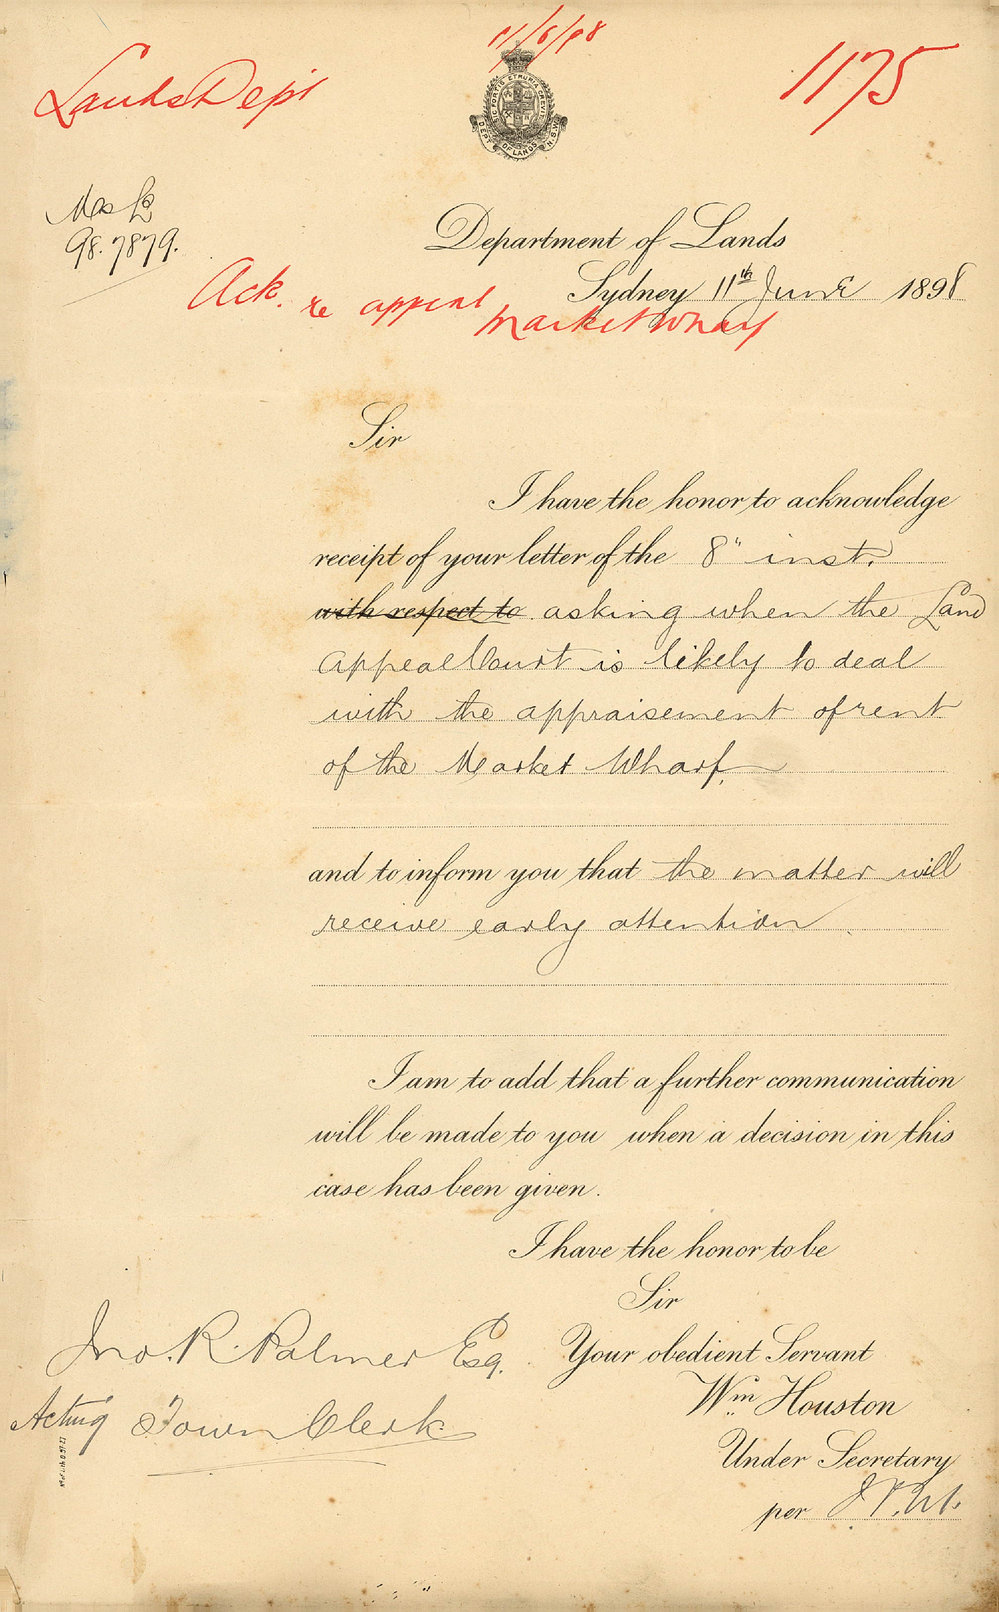 11/6/98
Lands Dept
1175
SIC FORTIS ETRURIA CREVIT
DEPT OF LANDS N.S.W.
98.7879.
Department of Lands
Sydney 11th June 1898
Ack. re appeal
Market Wharf
Sir
I have the honor to acknowledge
receipt of your letter of the 8" inst.
with respect to asking when the Land
Appeal Court is likely to deal
with the appraisement of rent
of the Market Wharf.
and to inform you that the matter will
receive early attention.
I am to add that a further communication
will be made to you when a decision in this
case has been given.
I have the honor to be
Sir
Your obedient Servant
Wm Houston
Under Secretary
per
Jno. R. Palmer Esq.
Acting Town Clerk